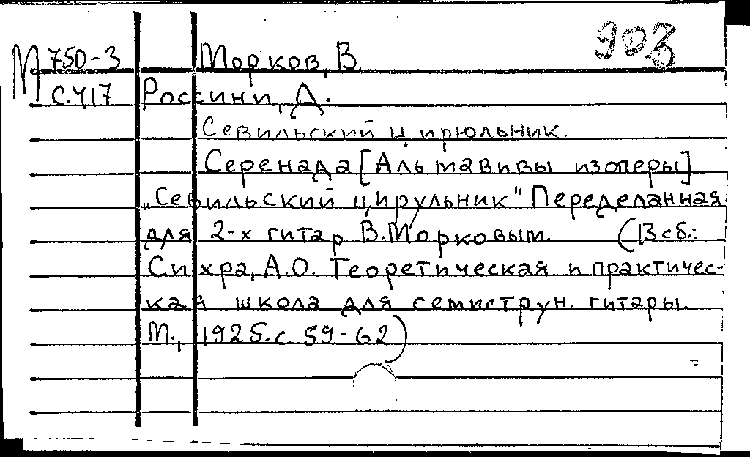 903
М 750-3 Морков, В
С.417 Россини, Д.
Севильский цирюльник.
Серенада [Альмавивы из оперы]
„Севильский цирульник" Переделанная
для 2-х гитар В.Морковым. (В сб.:
Сихра, А.О. Теоретическая и практичес-
кая школа для семиструн. гитары.
М., 1925. с. 59-62)